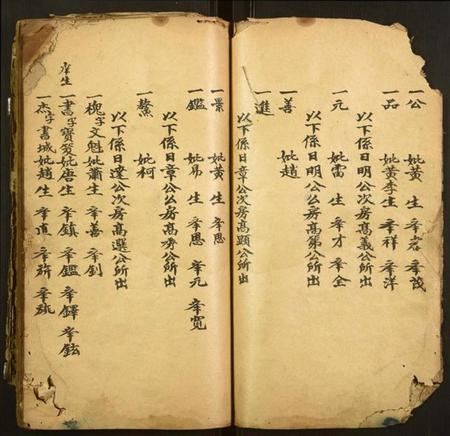 一公 妣黄 生 奉岩 奉茂
一品 妣黄李生 奉祥 奉洋
以下係日明公次房高義公所出
一元 妣雷 生 奉才 奉全
以下係日明公公房高第公所出
一善 妣趙
一進
以下係日章公次房高顕公所出
一景 妣黄生 奉思
一鑑 妣易 生 奉恩 奉元 奉寬
以下係日章公公房高秀公所出
一鰲 妣柯
以下係日達公次房高選公所出
一槐字文魁妣蕭生 奉善 奉釗
庠生
一書字寶發妣唐生 奉鎮 奉鑑 奉鐸 奉鉉
一杰字書城妣趙生 奉直 奉張